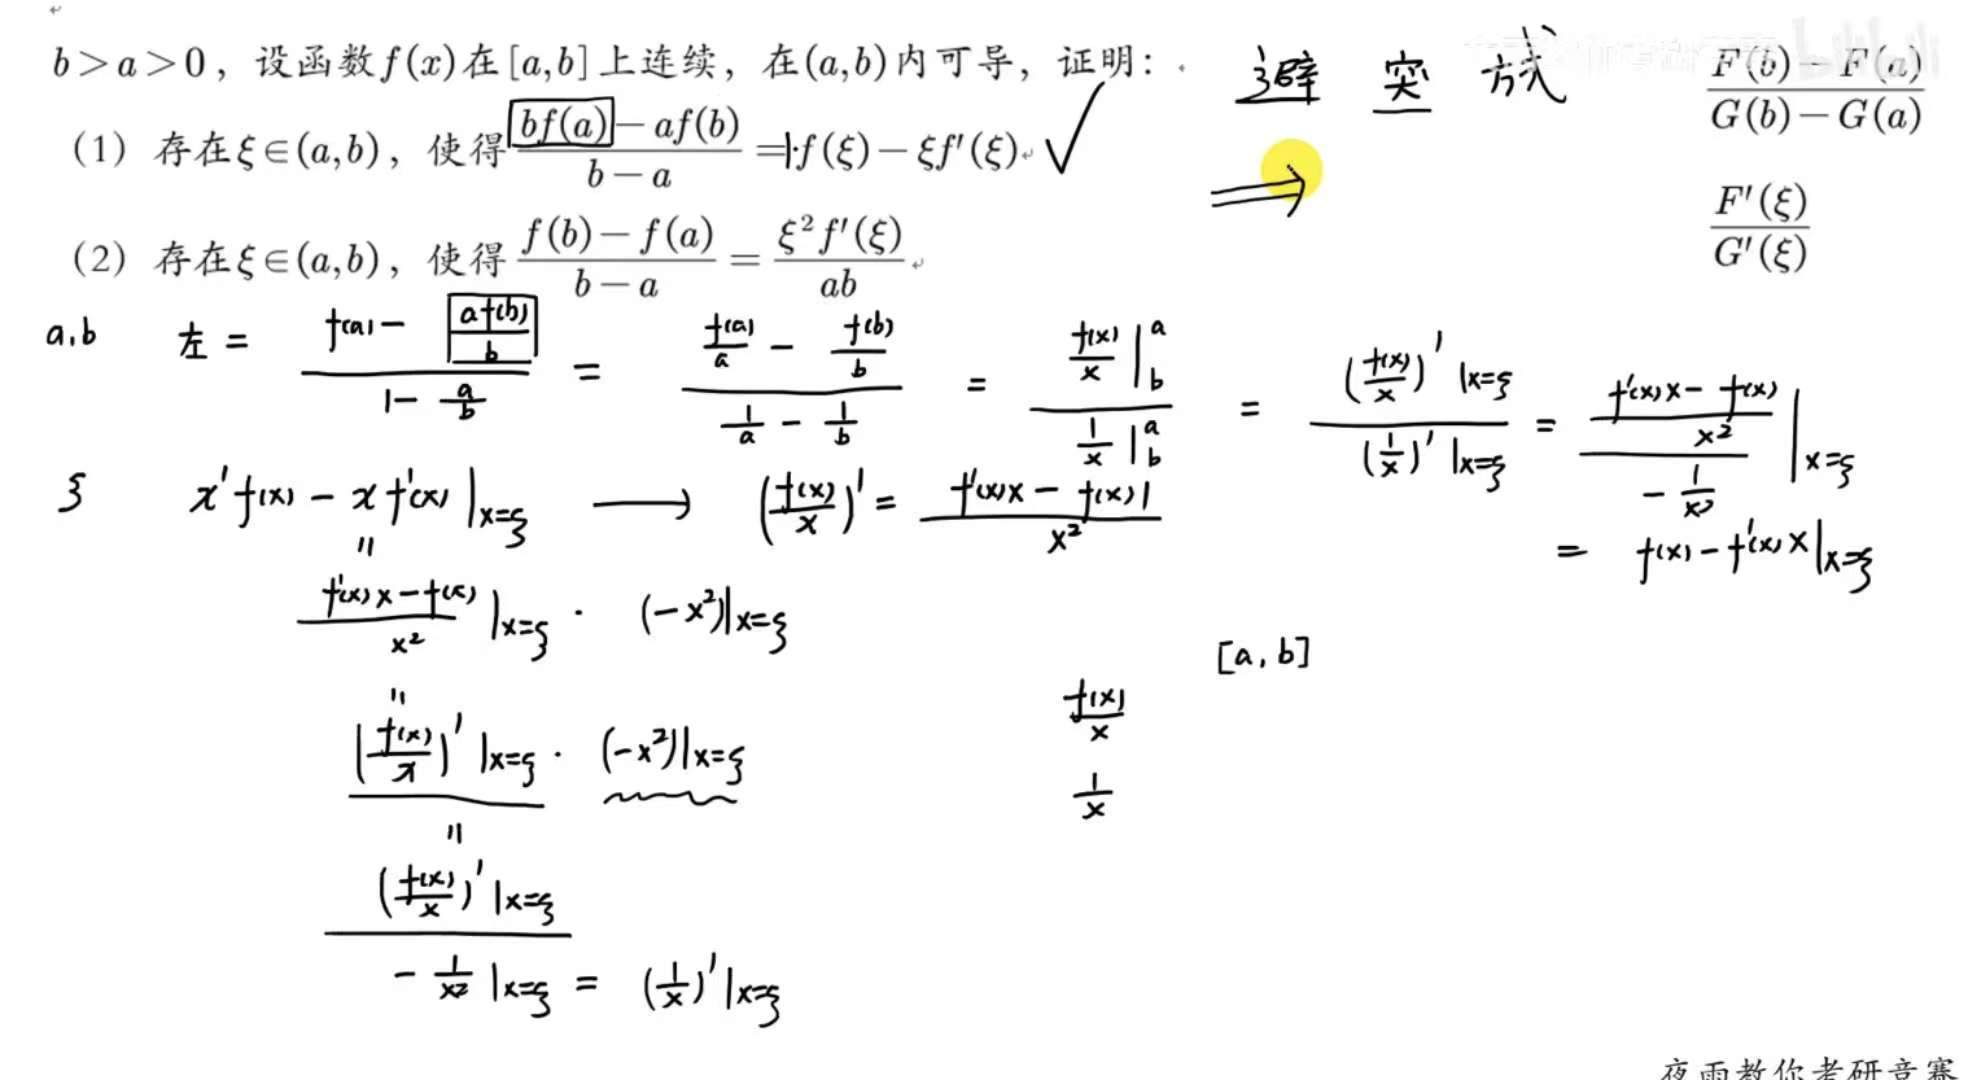 b>a>0，设函数f(x)在[a,b]上连续，在(a,b)内可导，证明：
避 突 方式
\frac{F(b)-F(a)}{G(b)-G(a)}
(1) 存在ξ∈(a,b)，使得\frac{bf(a)-af(b)}{b-a}=1·f(ξ)-ξf'(ξ) ✓
⟹
\frac{F'(ξ)}{G'(ξ)}
(2) 存在ξ∈(a,b)，使得\frac{f(b)-f(a)}{b-a}=\frac{ξ^2f'(ξ)}{ab}
a,b 左 = \frac{f(a)-\frac{af(b)}{b}}{1-\frac{a}{b}} = \frac{\frac{f(a)}{a}-\frac{f(b)}{b}}{\frac{1}{a}-\frac{1}{b}} = \frac{\frac{f(x)}{x}|_b^a}{\frac{1}{x}|_b^a} = \frac{(\frac{f(x)}{x})'|_{x=ξ}}{(\frac{1}{x})'|_{x=ξ}} = \frac{\frac{f'(x)x-f(x)}{x^2}}{-\frac{1}{x^2}}|_{x=ξ}
= f(x)-f'(x)x|_{x=ξ}
ξ x'f(x)-xf'(x)|_{x=ξ} ⟶ (\frac{f(x)}{x})' = \frac{f'(x)x-f(x)1}{x^2}
=
\frac{f'(x)x-f(x)}{x^2}|_{x=ξ} · (-x^2)|_{x=ξ}
=
(\frac{f(x)}{x})'|_{x=ξ} · (-x^2)|_{x=ξ}
=
\frac{(\frac{f(x)}{x})'|_{x=ξ}}{-\frac{1}{x^2}|_{x=ξ}} = (\frac{1}{x})'|_{x=ξ}
[a,b]
\frac{f(x)}{x}
\frac{1}{x}
夜雨教你考研竞赛